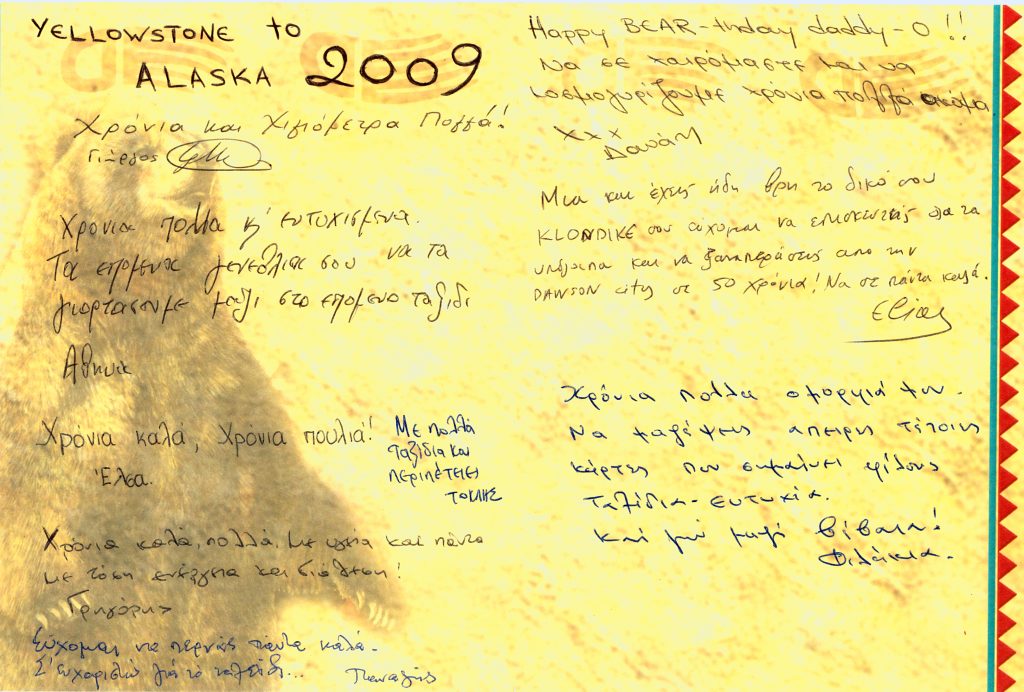 YELLOWSTONE to
ALASKA 2009
Χρόνια και Χιλιόμετρα Πολλά!
Γιώργος
Χρονια πολλα κ' ευτυχισμενα.
Τα επομενα γενεθλια σου να τα
γιορτασουμε μαζι στο επομενο ταξιδι
Αθηνα
Χρόνια καλά, Χρόνια πουλιά!
Έλσα.
Με πολλά
ταξίδια και
περιπέτειες
ΤΟΛΗΣ
Χρόνια καλά, πολλά, με υγεία και πάντα
με τόση ενέργεια και διάθεση!
Γρηγόρης
Εύχομαι να περνάς πάντα καλά.
Σ' ευχαριστώ για το ταξίδι...
Παναγιώτης
Happy BEAR-thday daddy-O!!
Να σε χαιρόμαστε και να
κοσμογυρίζουμε χρόνια πολλά ακόμα
xxx
Δανάη
Μια και έχεις ήδη βρη το δικό σου
KLONDIKE σου εύχομαι να επισκευτείς όλα τα
υπόλοιπα και να ξαναπεράσεις απο την
DAWSON city σε 50 χρόνια! Να σε πάντα καλά.
Χρόνια πολλα ομορφιά μου.
Να μαζέψεις απειρες τέτοιες
κάρτες που σημαίνει φίλους
ταξίδια - ευτυχία.
Και μου μαζί βέβαια!
Φιλάκια.